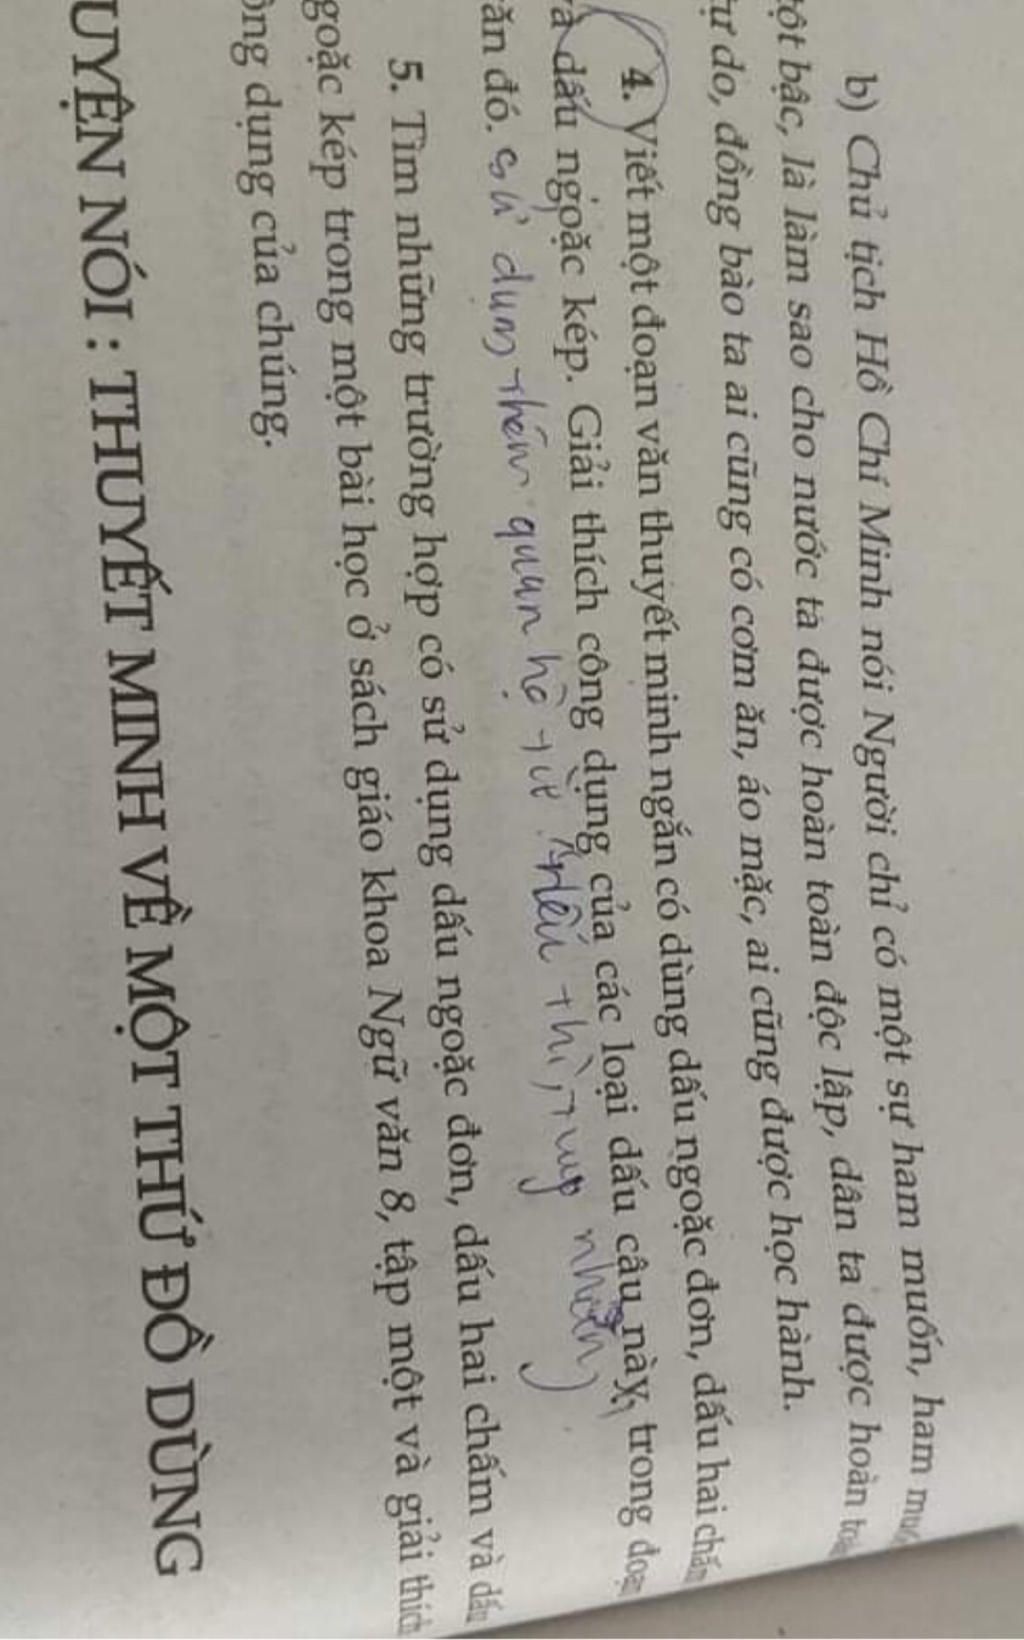 b) Chủ tịch Hồ Chí Minh nói Người chỉ có một sự ham muốn, ham
bậc, là làm sao cho nước ta được hoàn toàn độc lập, dân ta được hoàn
do, đồng bào ta ai cũng có cơm ăn, áo mặc, ai cũng được học hành.
4. Viết một đoạn văn thuyết minh ngắn có dùng dấu ngoặc đơn, dấu hai chấm
và dấu ngoặc kép. Giải thích công dụng của các loại dấu câu này trong đoạn
văn đó. sử dụng thêm quan hệ từ nếu thì, tuy nhiên)
5. Tìm những trường hợp có sử dụng dấu ngoặc đơn, dấu hai chấm và dấu
goặc kép trong một bài học ở sách giáo khoa Ngữ văn 8, tập một và giải thích
ông dụng của chúng.
UYỆN NÓI : THUYẾT MINH VỀ MỘT THỨ ĐỒ DÙNG